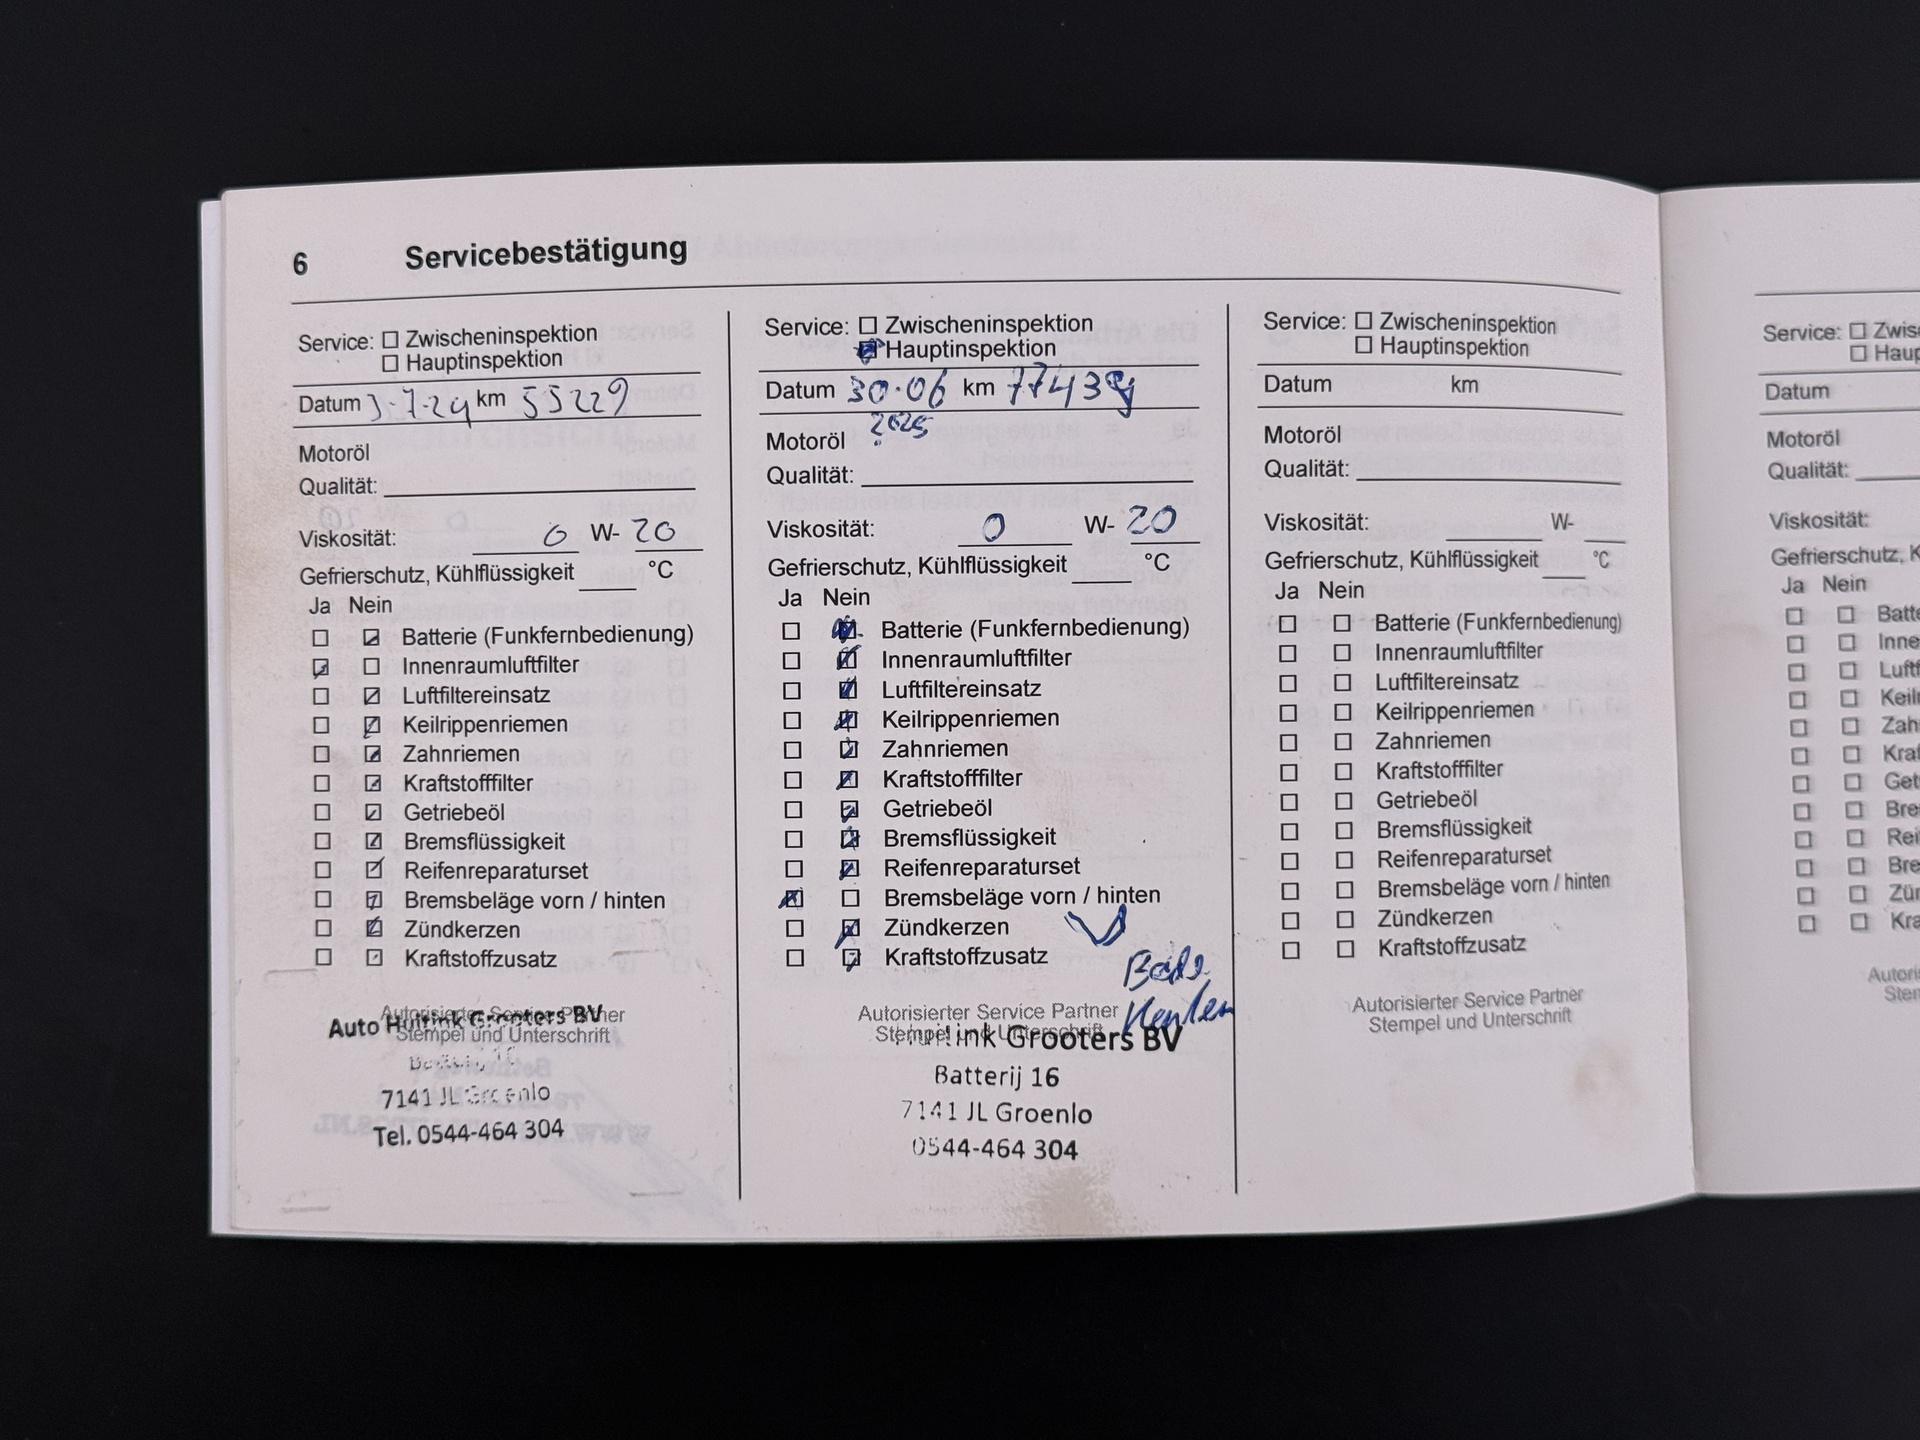 6 Servicebestätigung
Service: ☐ Zwischeninspektion
☐ Hauptinspektion
Datum 3-7-24 km 55229
Motoröl
Qualität:
Viskosität: 0 W- 20
Gefrierschutz, Kühlflüssigkeit °C
Ja Nein
☐ ☑ Batterie (Funkfernbedienung)
☑ ☐ Innenraumluftfilter
☐ ☑ Luftfiltereinsatz
☐ ☑ Keilrippenriemen
☐ ☑ Zahnriemen
☐ ☑ Kraftstofffilter
☐ ☑ Getriebeöl
☐ ☑ Bremsflüssigkeit
☐ ☑ Reifenreparaturset
☐ ☑ Bremsbeläge vorn / hinten
☐ ☑ Zündkerzen
☐ ☑ Kraftstoffzusatz
Autorisierter Service Partner
Stempel und Unterschrift
Auto Huitink Grooters BV
7141 JL Groenlo
Tel. 0544-464 304
Service: ☐ Zwischeninspektion
☑ Hauptinspektion
Datum 30-06 km 77439
2025
Motoröl
Qualität:
Viskosität: 0 W- 20
Gefrierschutz, Kühlflüssigkeit °C
Ja Nein
☐ ☑ Batterie (Funkfernbedienung)
☐ ☑ Innenraumluftfilter
☐ ☑ Luftfiltereinsatz
☐ ☑ Keilrippenriemen
☐ ☑ Zahnriemen
☐ ☑ Kraftstofffilter
☐ ☑ Getriebeöl
☐ ☑ Bremsflüssigkeit
☐ ☑ Reifenreparaturset
☑ ☐ Bremsbeläge vorn / hinten
☐ ☑ Zündkerzen
☐ ☑ Kraftstoffzusatz
Autorisierter Service Partner
Stempel und Unterschrift
Grooters BV
Batterij 16
7141 JL Groenlo
0544-464 304
Service: ☐ Zwischeninspektion
☐ Hauptinspektion
Datum km
Motoröl
Qualität:
Viskosität: W-
Gefrierschutz, Kühlflüssigkeit °C
Ja Nein
☐ ☐ Batterie (Funkfernbedienung)
☐ ☐ Innenraumluftfilter
☐ ☐ Luftfiltereinsatz
☐ ☐ Keilrippenriemen
☐ ☐ Zahnriemen
☐ ☐ Kraftstofffilter
☐ ☐ Getriebeöl
☐ ☐ Bremsflüssigkeit
☐ ☐ Reifenreparaturset
☐ ☐ Bremsbeläge vorn / hinten
☐ ☐ Zündkerzen
☐ ☐ Kraftstoffzusatz
Autorisierter Service Partner
Stempel und Unterschrift
Service: ☐ Zwisc
☐ Haup
Datum
Motoröl
Qualität:
Viskosität:
Gefrierschutz, K
Ja Nein
☐ ☐ Batte
☐ ☐ Inne
☐ ☐ Luft
☐ ☐ Keil
☐ ☐ Zah
☐ ☐ Kraf
☐ ☐ Get
☐ ☐ Bre
☐ ☐ Rei
☐ ☐ Bre
☐ ☐ Zün
☐ ☐ Kra
Autoris
Stem